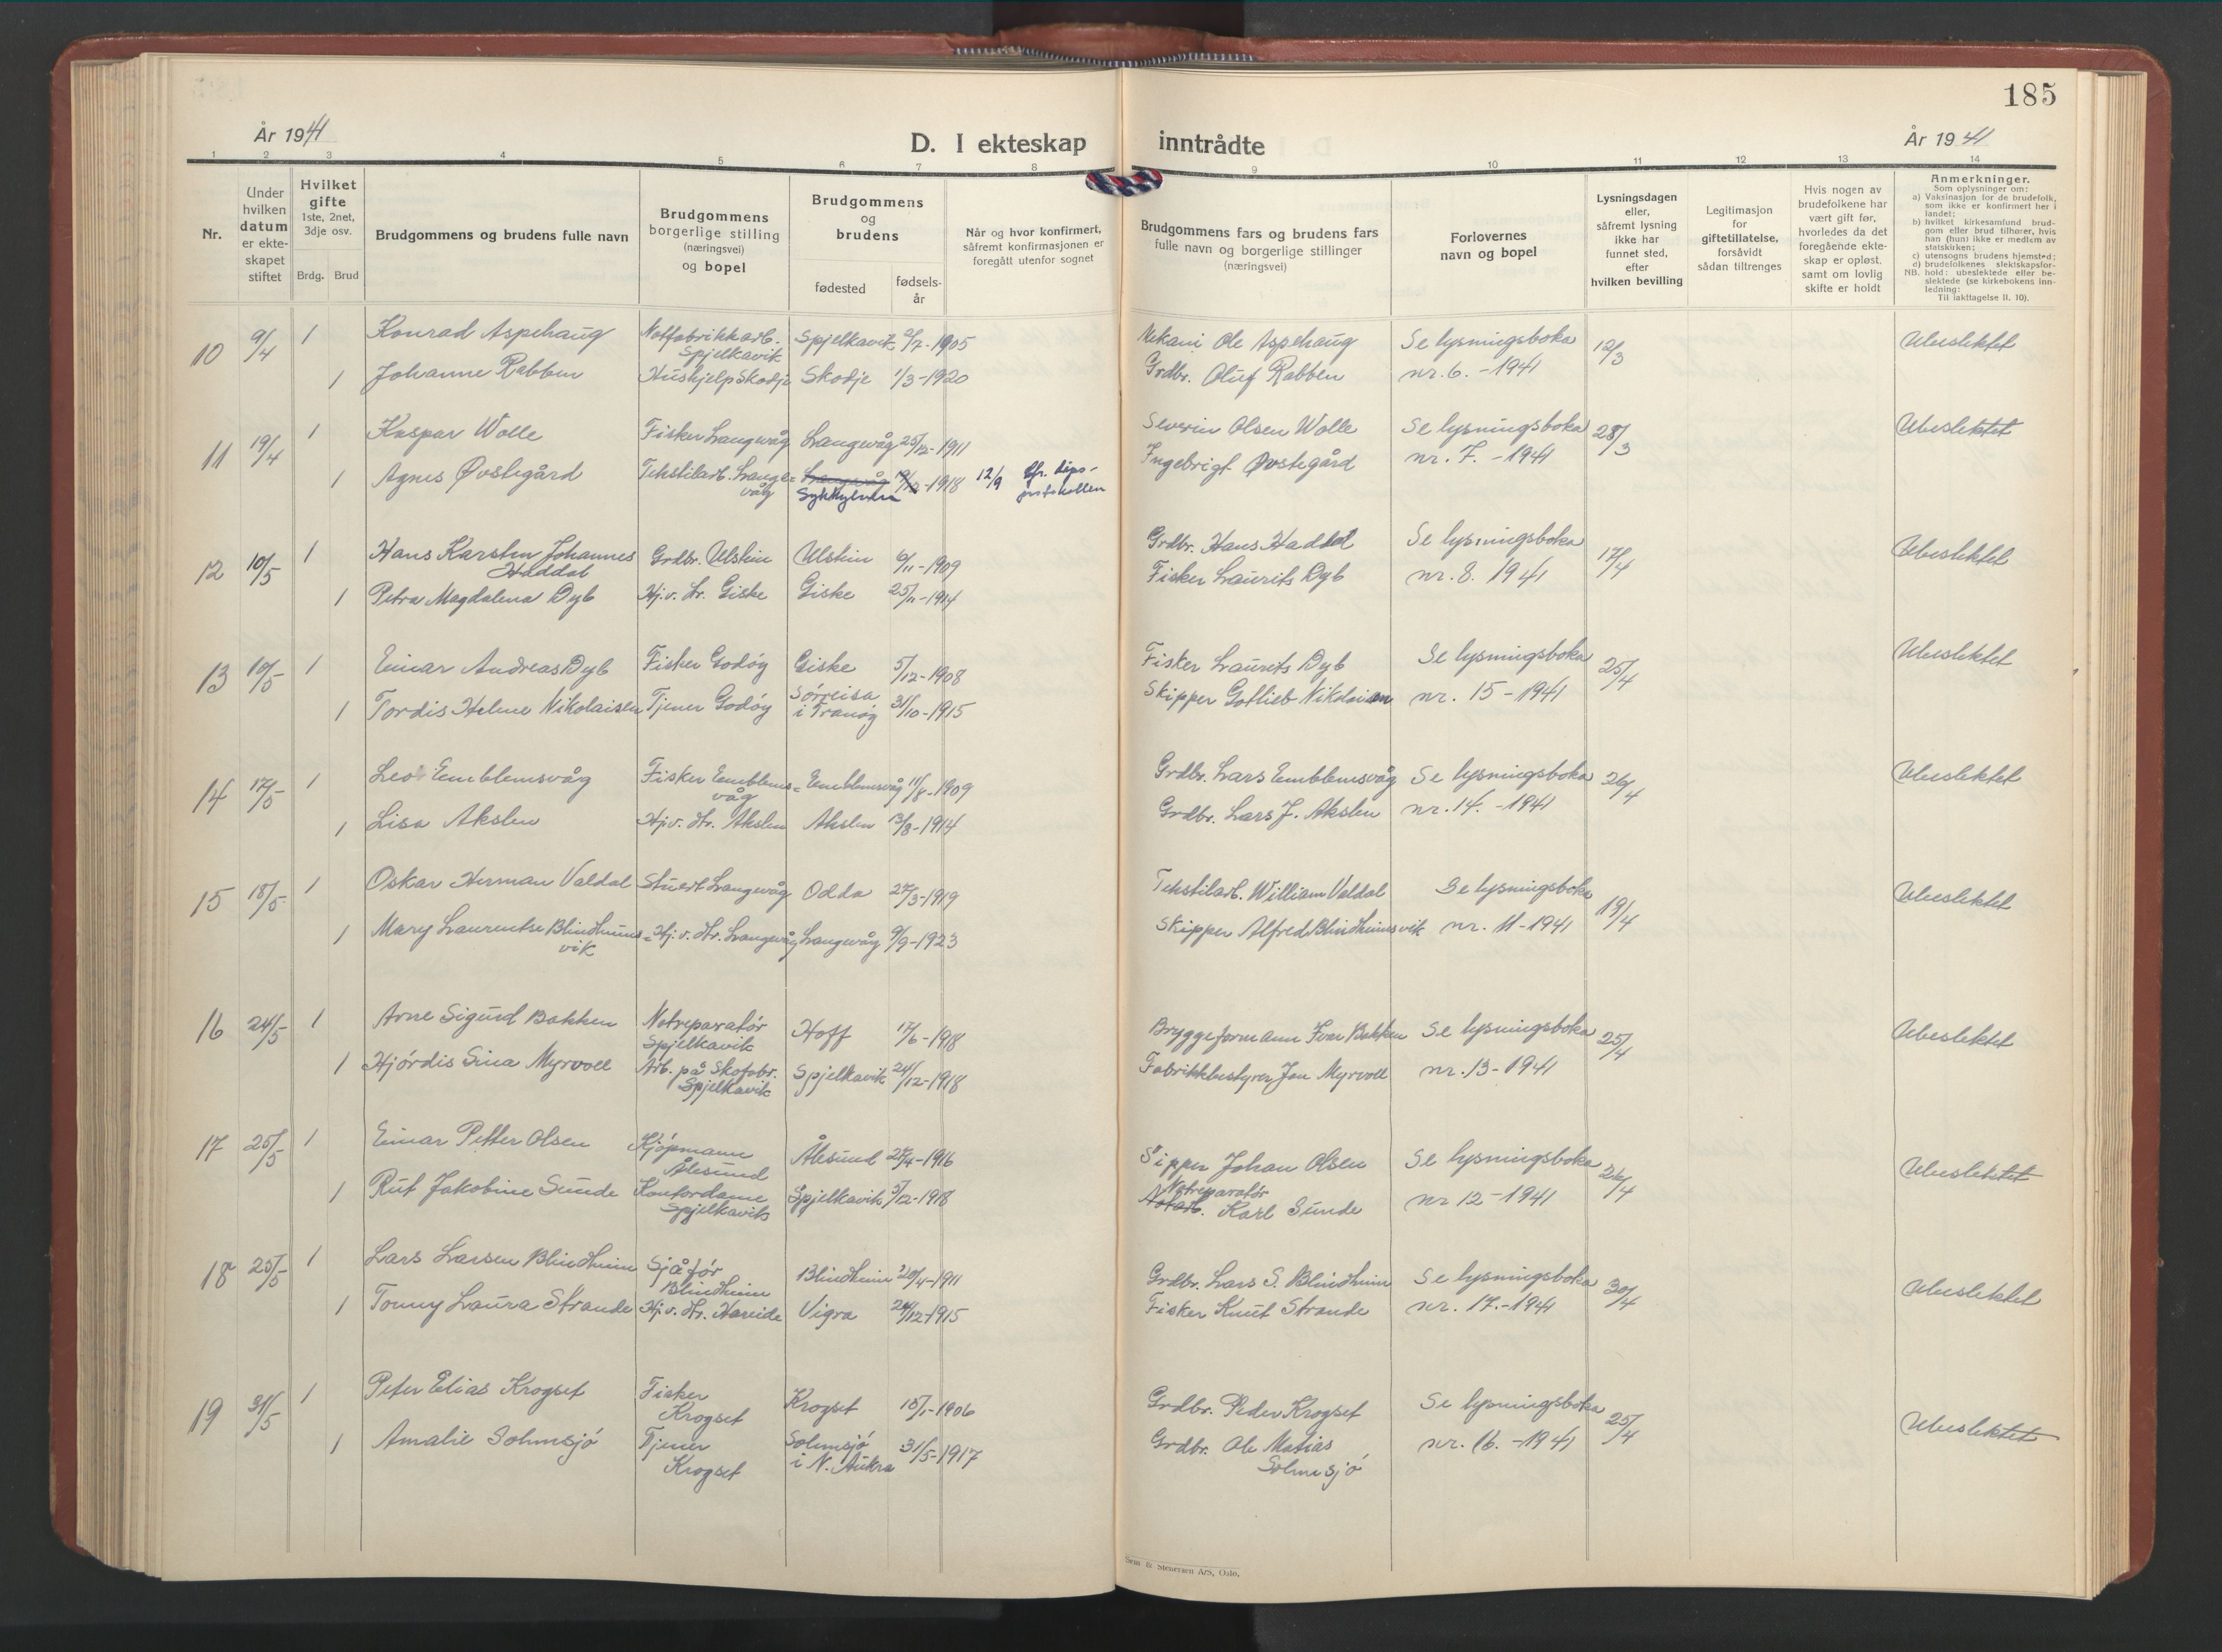 185
År 1941
D. I ekteskap inntrådte
År 1941
1 2 3 4 5 6 7 8 9 10 11 12 13 14
Nr.
Under hvilken datum er ekteskapet stiftet
Hvilket gifte
1ste, 2net, 3dje osv.
Brdg. Brud
Brudgommens og brudens fulle navn
Brudgommens borgerlige stilling (næringsvei) og bopel
Brudgommens og brudens
fødested
fødselsår
Når og hvor konfirmert, såfremt konfirmasjonen er foregått utenfor sognet
Brudgommens fars og brudens fars fulle navn og borgerlige stillinger (næringsvei)
Forlovernes navn og bopel
Lysningsdagen eller, såfremt lysning ikke har funnet sted, efter hvilken bevilling
Legitimasjon for giftetillatelse, forsåvidt sådan tiltrenges
Hvis nogen av brudefolkene har vært gift før, hvorledes da det foregående ekteskap er opløst. samt om lovlig skifte er holdt
Anmerkninger.
Som oplysninger om:
a) Vaksinasjon for de brudefolk, som ikke er konfirmert her i landet;
b) hvilket kirkesamfund brudgom eller brud tilhører, hvis han (hun) ikke er medlem av statskirken;
c) utensogns brudens hjemsted;
d) brudefolkenes slektskapsforhold: ubeslektede eller beslektede (se kirkebokens innledning:
NB.
Til iakttagelse II. 10).
10 9/4 1 Konrad Aspehaug Notfabrikkarb. Spjelkavik Spjelkavik 1905 Ole Aspehaug Se lysningsboka 12/3 Ubeslektet
1 Johanne Rabben Hushjelp Skodje Skodje 1/3-1920 Grdbr. Oluf Rabben nr. 6. - 1941
11 19/4 1 Kaspar Wolle Fisker Langevåg Langevåg 25/12-1911 Severin Olsen Wolle Se lysningsboka 28/3 Ubeslektet
1 Agnes Øvstegård Tekstilarb. Lange=våg Langevåg Sykkylven 1918 12/9 Ingebrigt Øvstegård nr. 7. - 1941
12 10/5 1 Hans Karsten Johannes Haddal Grdbr. Ulstein Ulstein 6/11-1909 Grdbr. Hans Haddal Se lysningsboka 17/4 Ubeslektet
1 Petra Magdalena Dyb Hj.v. dr. Giske Giske 25/11-1914 Fisker Laurits Dyb nr. 8. 1941
13 10/5 1 Einar Andreas Dyb Fisker Godøy Giske 5/12-1908 Fisker Laurits Dyb Se lysningsboka 25/4 Ubeslektet
1 Tordis Helene Nikolaisen Tjener Godøy Sørreisa i Tranøy 31/10-1915 Skipper Gotlieb Nikolaisen nr. 15 - 1941
14 17/5 1 Leo Emblemsvåg Fisker Emblems=våg Emblemsvåg 11/8-1909 Grdbr. Lars Emblemsvåg Se lysningsboka 26/4 Ubeslektet
1 Lisa Akslen Hj.v. dr. Akslen Akslen 13/8-1914 Grdbr. Lars J. Akslen nr. 14. - 1941
15 18/5 1 Oskar Herman Valdal Stuert Langevåg Odda 27/3-1919 Tekstilarb. William Valdal Se lysningsboka 19/4 Ubeslektet
1 Mary Laurentse Blindheims=vik Hj.v. dr. Langevåg Langevåg 9/9-1923 Skipper Alfred Blindheimsvik nr. 11 - 1941
16 24/5 1 Arne Sigurd Bakken Notreparatør Spjelkavik Hoff 17/6-1918 Bryggeformann Ivar Bakken Se lysningsboka 25/4 Ubeslektet
1 Hjørdis Sina Myrvoll Arb. på Skofabr. Spjelkavik Spjelkavik 24/12-1918 Fabrikkbestyrer Jon Myrvoll nr. 13 - 1941
17 25/5 1 Einar Petter Olsen Kjøpmann Ålesund Ålesund 27/4-1916 Johan Olsen Se lysningsboka 26/4 Ubeslektet
1 Rut Jakobine Sunde Kontordame Spjelkavik Spjelkavik 5/12-1918 Notreparatør Notarb. Karl Sunde nr 12 - 1941
18 25/5 1 Lars Larsen Blindheim Sjåfør Blindheim Blindheim 20/4-1911 Grdbr. Lars S. Blindheim Se lysningsboka 30/4 Ubeslektet
1 Tonny Laura Strande Hj.v. dr. Hareide Vigra 24/12-1915 Fisker Knut Strande nr. 17. - 1941
19 31/5 1 Peter Elias Krogset Fisker Krogset Krogset 15/1-1906 Grdbr. Peder Krogset Se lysningsboka 25/4 Ubeslektet
1 Amalie Solemsjø Tjener Krogset Solemsjø i N. Aukra 31/5-1917 Grdbr. Ole Matias Solemsjø nr. 16. - 1941
Sem & Stenersen A/S, Oslo.